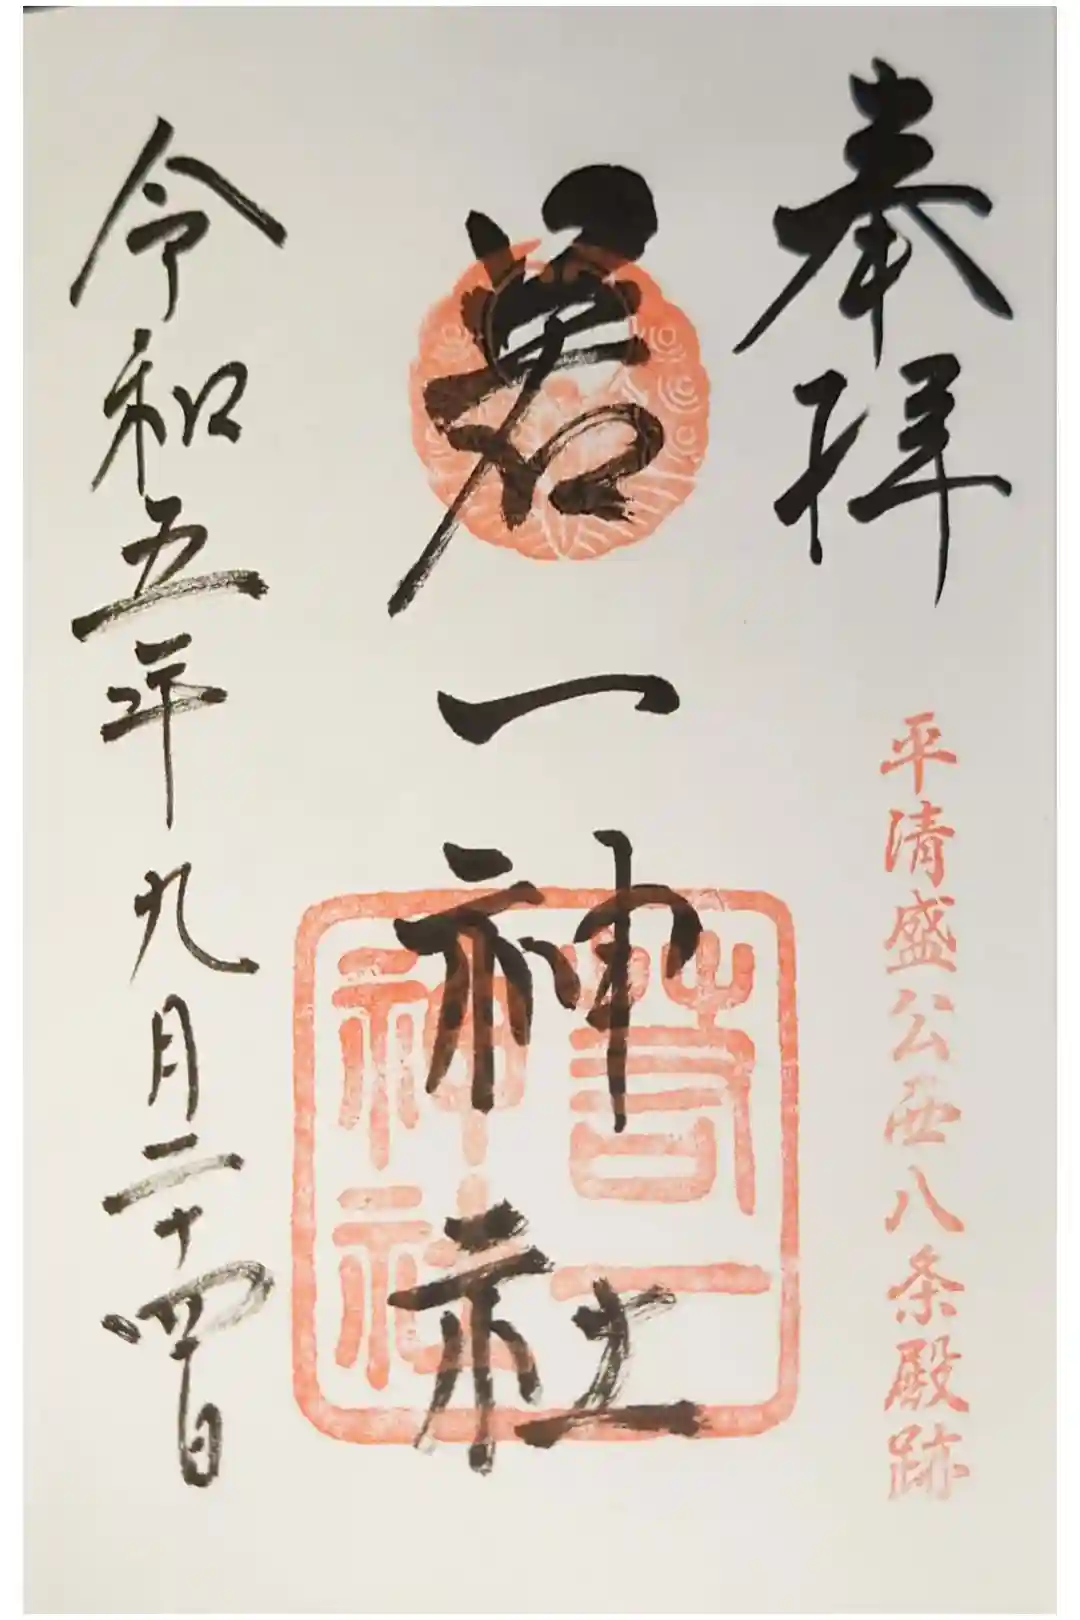 奉拝
平清盛公西八条殿跡
若一神社
若一
神社
令和五年九月二十四日